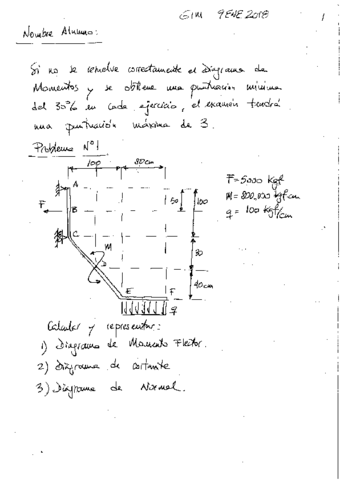 GIM 9 ENE 2018 1
Nombre Alumno:
Si no se resuelve correctamente el diagrama de
Momentos y se obtiene una puntuación mínima
del 30% en cada ejercicio, el examen tendrá
una puntuación máxima de 3.
Problema Nº1
100 80cm
A
F B 50 100
C
M 80
E F 40cm
q
F=5000 Kgf
M=800,000 kgf cm
q= 100 Kgf/cm
Calcular y representar:
1) Diagrama de Momento Flector.
2) Diagrama de cortante
3) Diagrama de Normal.